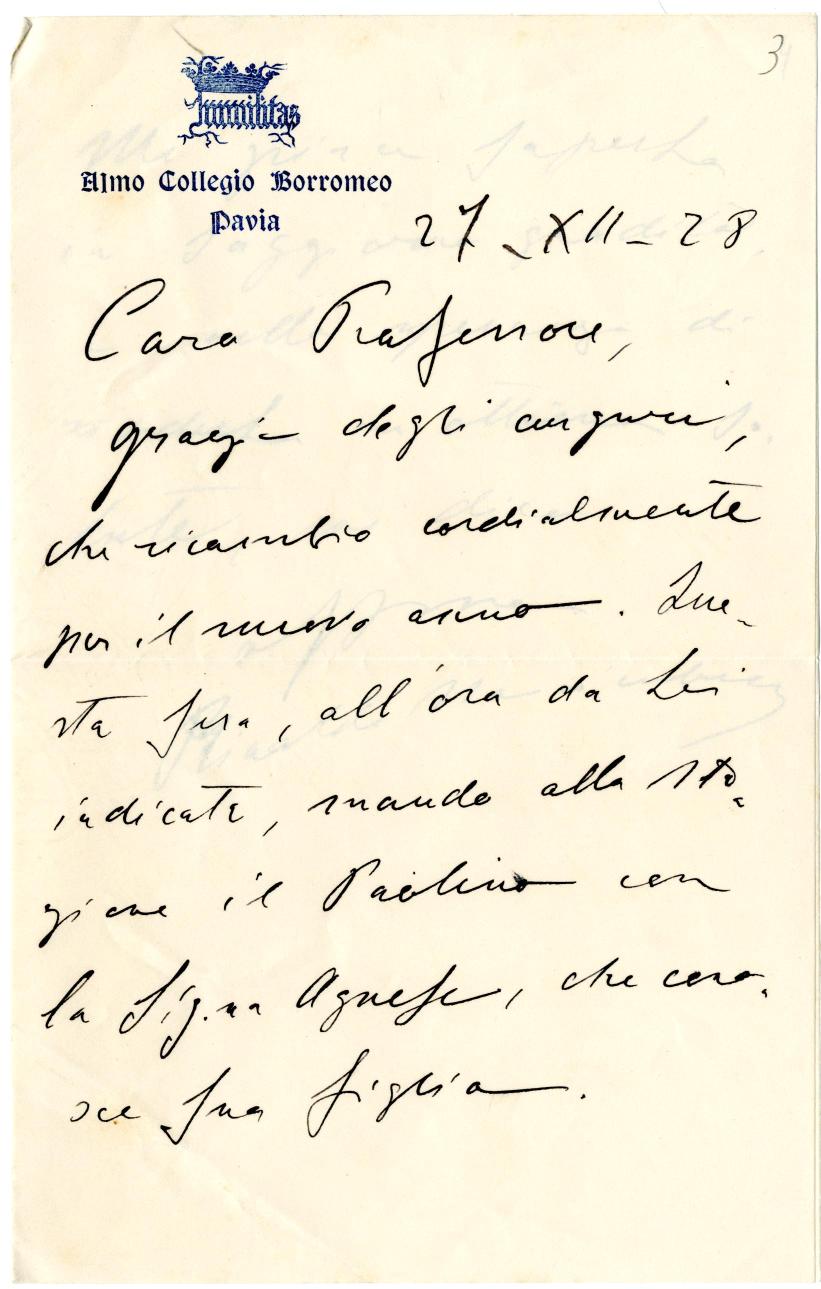 3
Humilitas
Almo Collegio Borromeo
Pavia
27-XII-28
Caro Professore,
grazie degli auguri,
che ricambio cordialmente
per il nuovo anno. Que-
sta sera, all'ora da Lei
indicata, mando alla sta-
zione il Paolino con
la Sig.na Agnese, che cono-
sce Sua figlia.